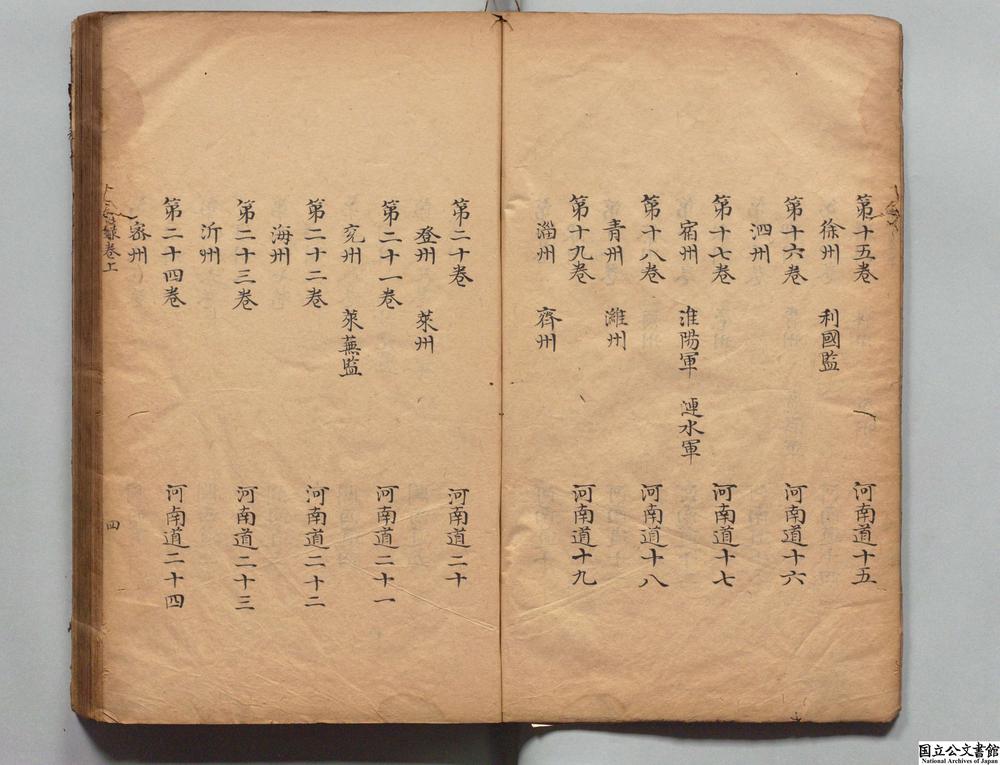 第十五卷 河南道十五
徐州 利國監
第十六卷 河南道十六
泗州
第十七卷 河南道十七
宿州 淮陽軍 漣水軍
第十八卷 河南道十八
青州 濰州
第十九卷 河南道十九
淄州 齊州
第二十卷 河南道二十
登州 萊州
第二十一卷 河南道二十一
兗州 萊蕪監
第二十二卷 河南道二十二
海州
第二十三卷 河南道二十三
沂州
第二十四卷 河南道二十四
密州
錄卷上
四
国立公文書館
National Archives of Japan